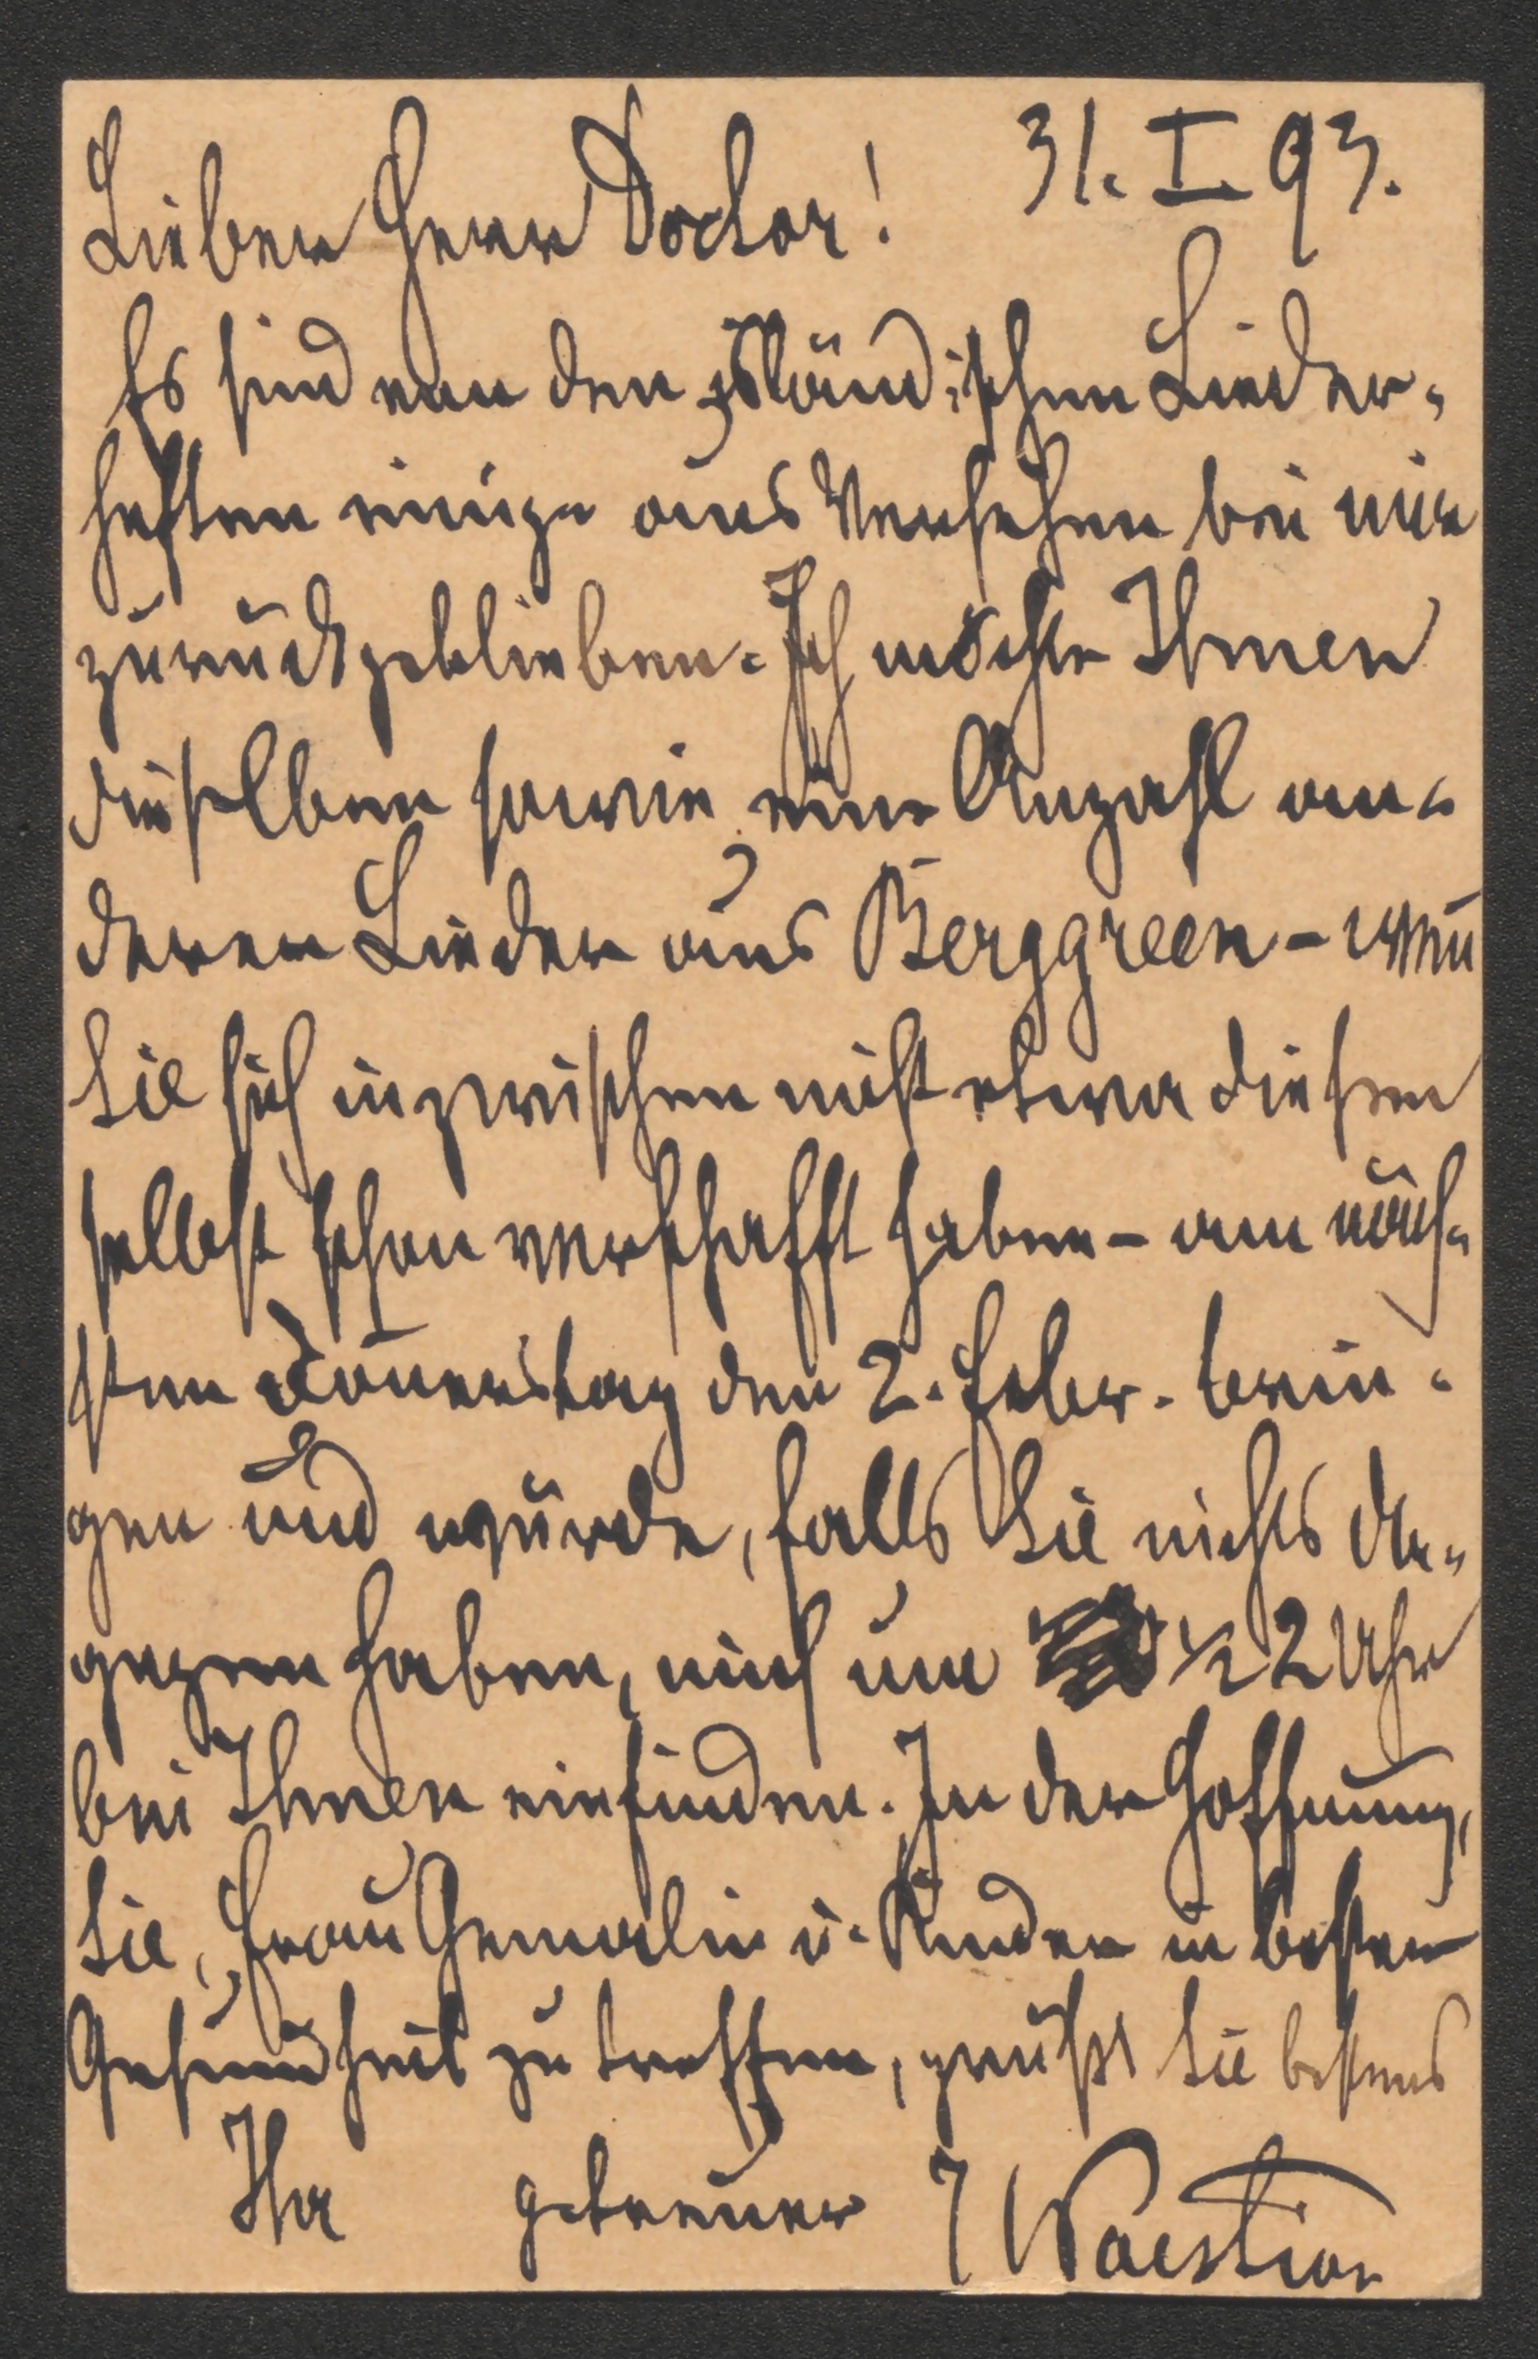 31. I. 93.
Lieber Herr Doctor!
Es sind von den isländischen Lieder-
heften einige aus Versehen bei mir
zurückgeblieben. Ich möchte Ihnen
dieselben sowie eine Anzahl an-
derer Lieder aus Berggreen - wenn
Sie sich inzwischen nicht etwa diesen
selbst schon verschafft haben - am näch-
sten Donerstag den 2. Febr. brin-
gen und würde, falls Sie nichts da-
gegen haben, mich um ½ 2 Uhr
bei Ihnen einfinden. In der Hoffnung,
Sie, Frau Gemalin u. Kinder in bester
Gesundheit zu treffen, grüßt Sie bestens
Ihr getreuer J Poestion